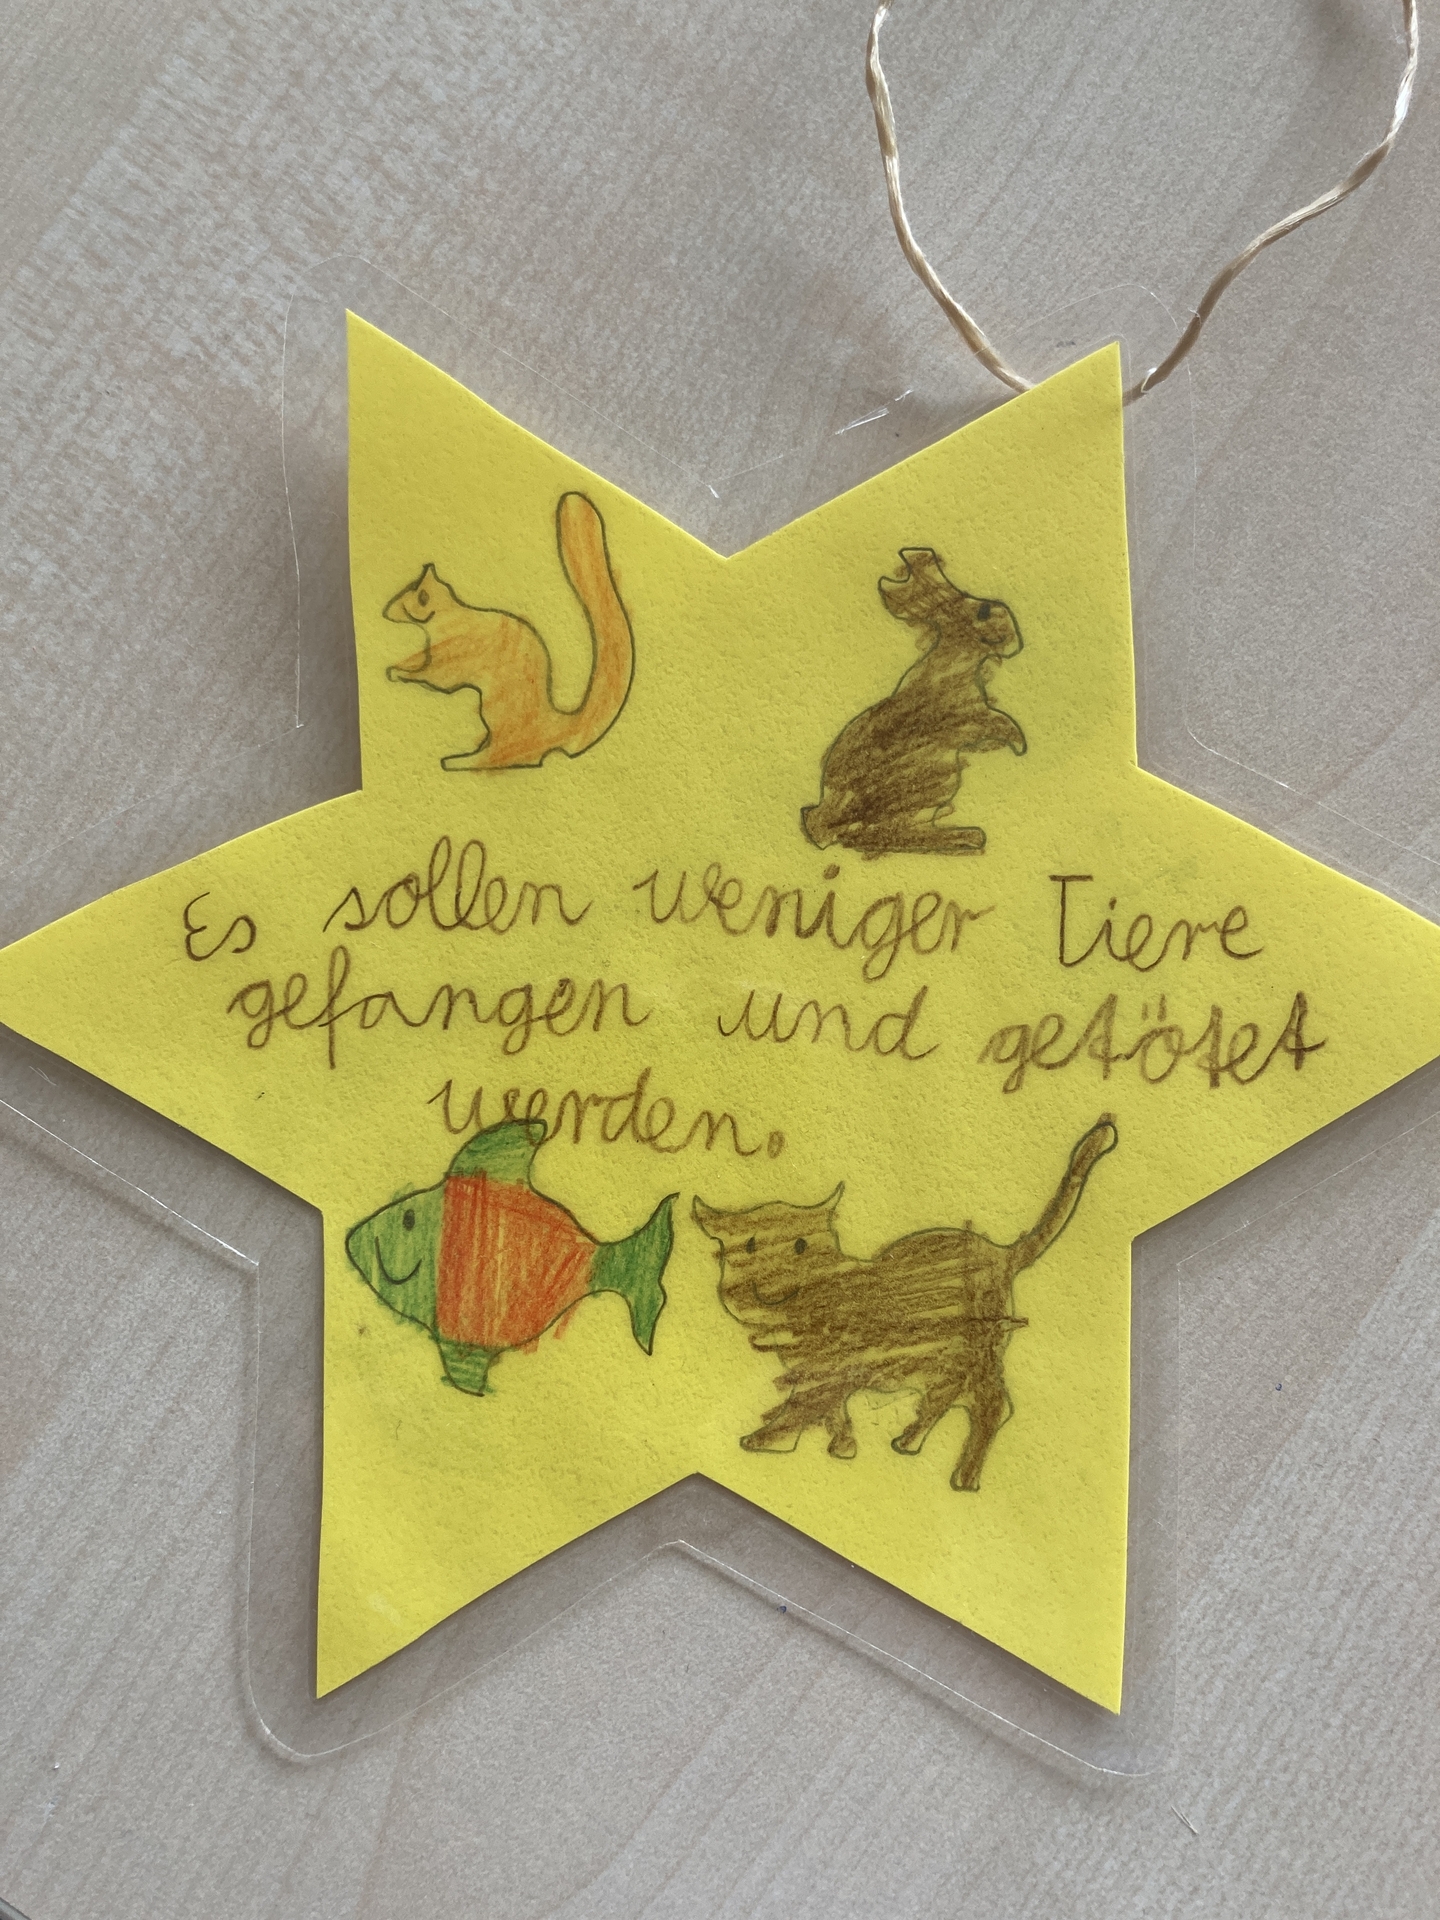 Es sollen weniger Tiere
gefangen und getötet
werden.